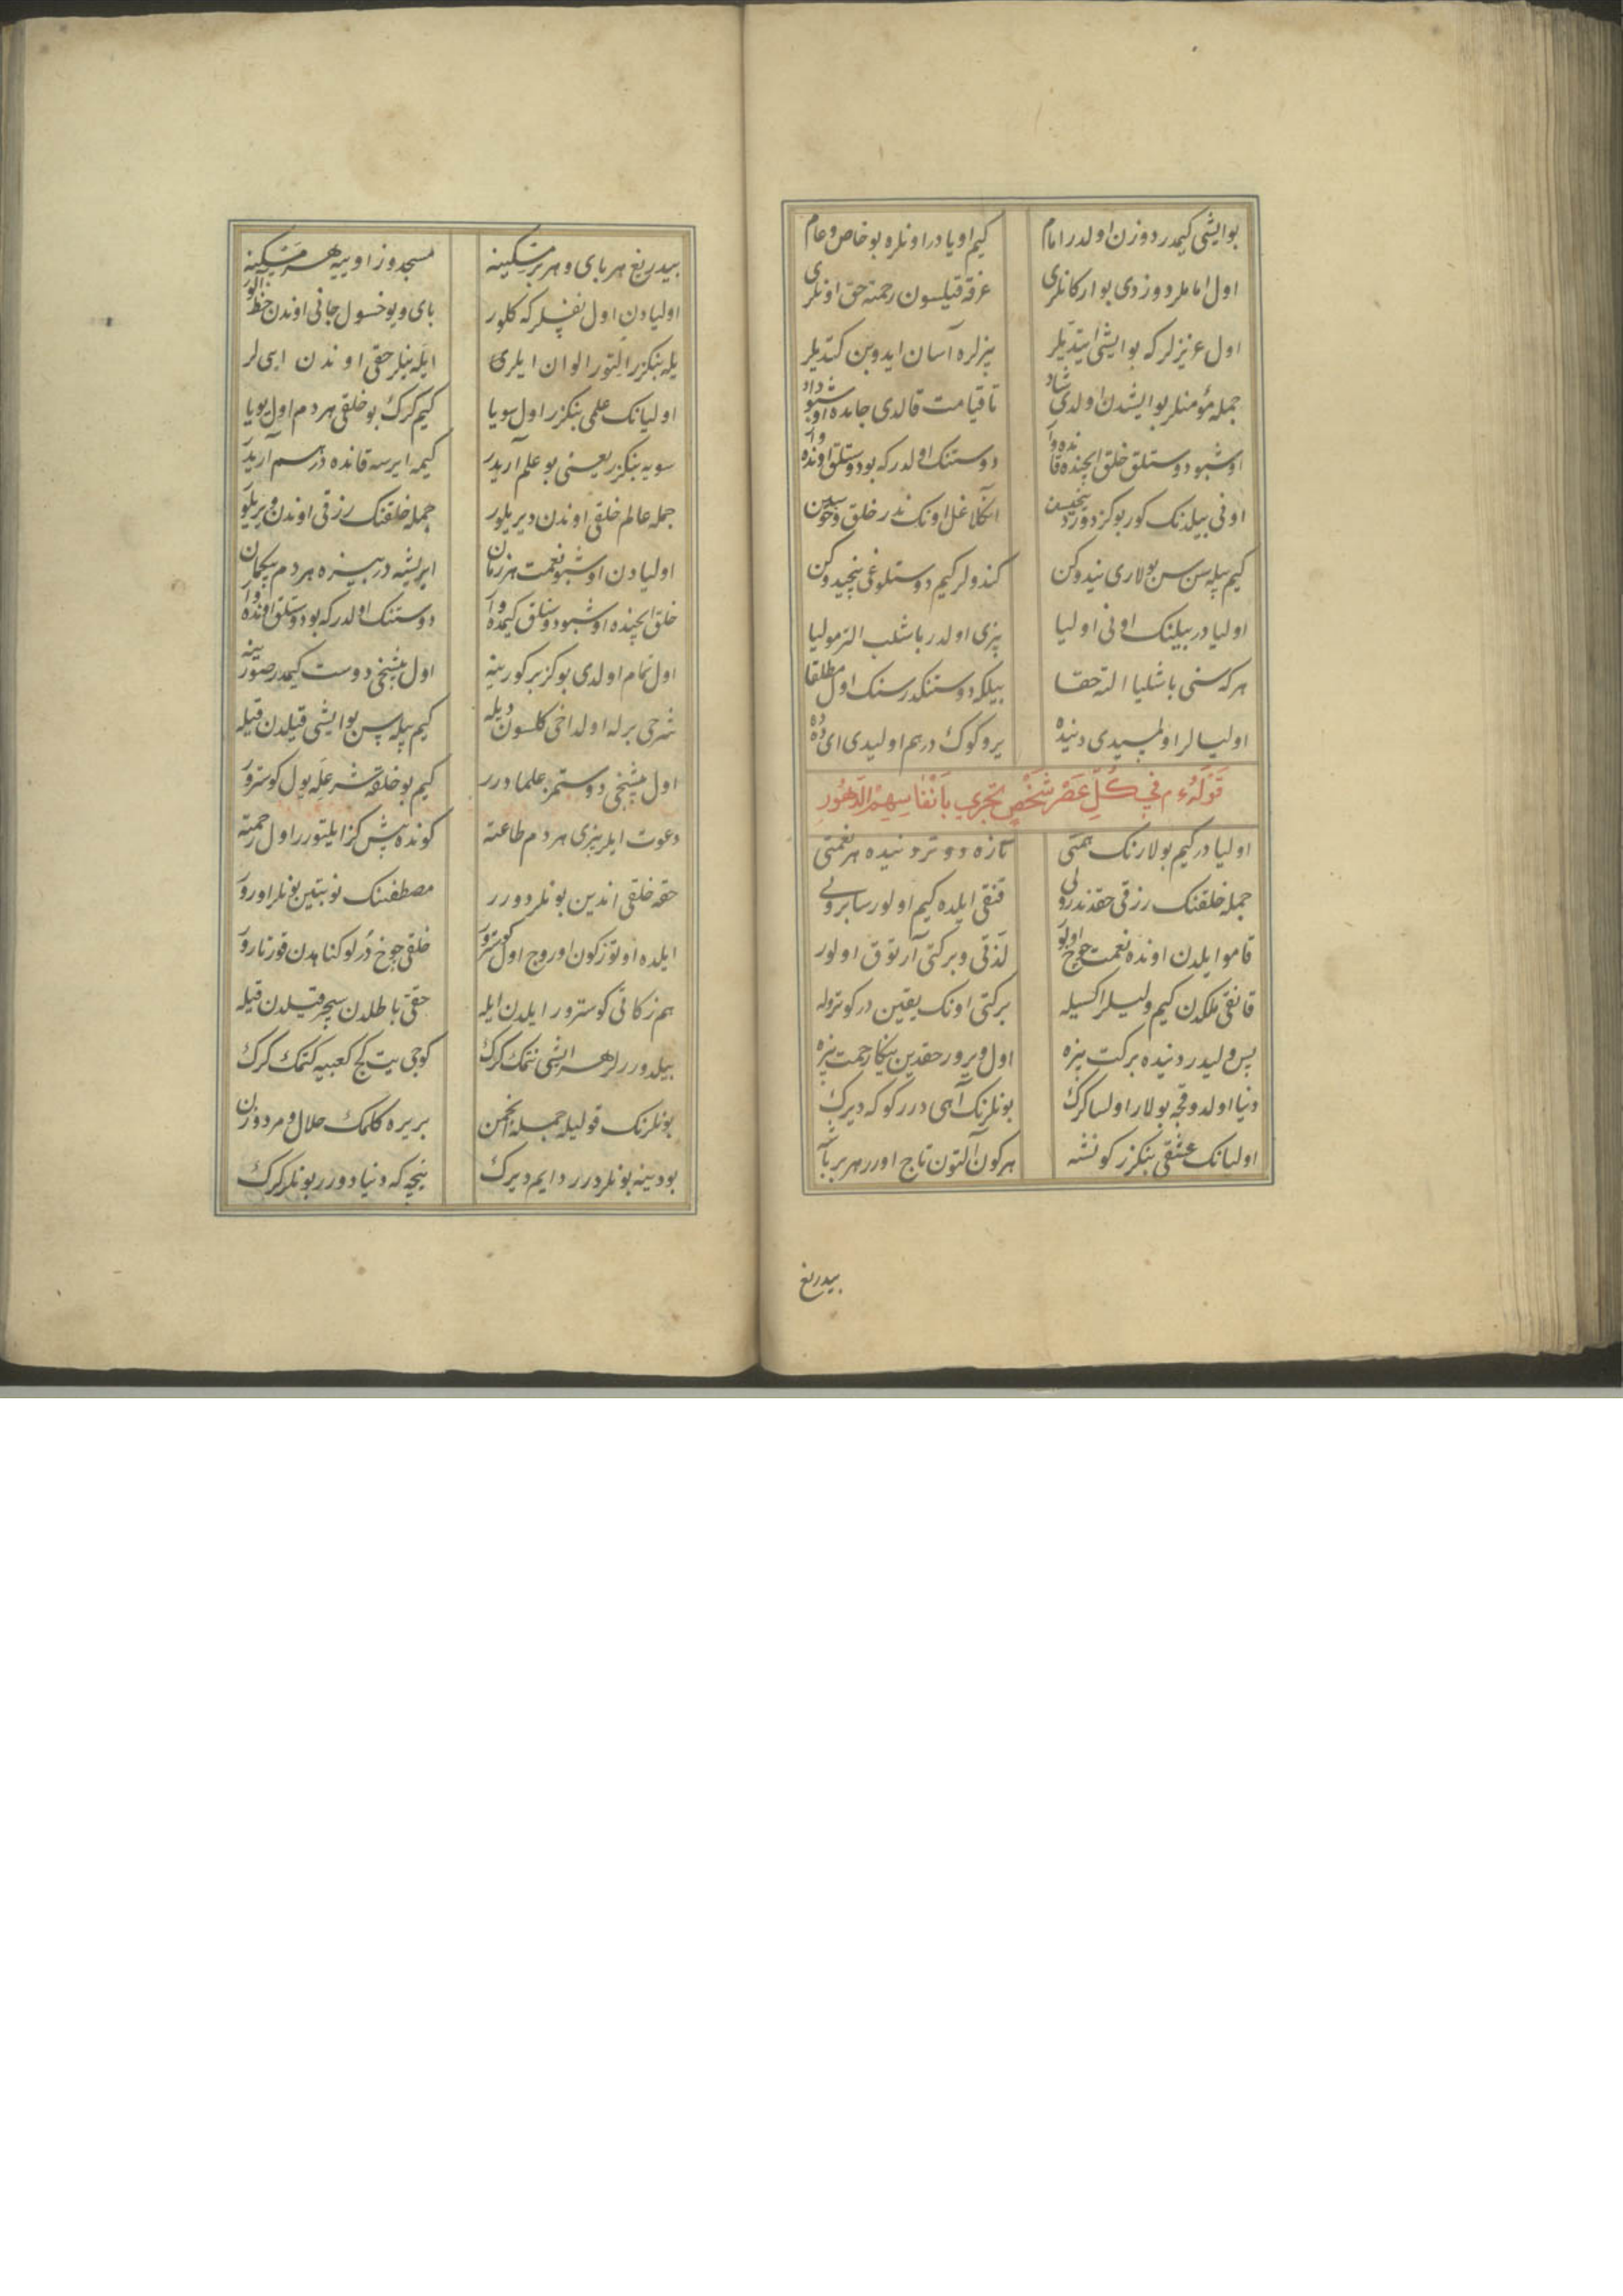 بو ایشی کیمدر دوزن اولدر امام کیم اویادر اونلره بو خاص و عام
اول اماملر دوزدی بو ارکانلری غرقه قیلسون رحمته حق اونلری
اول عزیزلر که بو ایشی ایتدیلر بیزلره آسان ایدوبن کتدیلر
جمله مؤمنلر بو ایشدن اولدی شاد تا قیامت قالدی جانده اوشبو داد
اوشبو دوستلق خلق ایچنده قانده وار دوستنک اولدر که بو دوستلق اونده وار
اونی بیلدنک کور بو کز دورد
کیم بیله سن سن بولاری نیدوکن کندولر کیم دوستلوغی نیجیدوکن
اولیادر بیلنک اونی اولیا بیزی اولدر باشلب التزمولیا
هر که سنی باشلیا الته حقا بیلکه دوستنکدر سنک اول مطلقا
اولیالر اولمسیدی دنیده یر و کوک درهم اولیدی ای دده
قوله ع م في كل عصر شخص تجري بأنفاسهم الدهور
اولیادر کیم بولارنک همتی تازه دوتر دنیده هر نعمتی
جمله خلقنک رزقی حقدندر ولی قنقی ایلده کیم اولورسا بر ولی
قامو ایلدن اونده نعمت چوخ اولور لذتی و برکتی آرتوق اولور
قانقی ملکدن کیم ولیلر اکسیله برکتی اونک یقین در کوتروله
پس ولیدر دنیده برکت بیزه اول ویرور حقدین ینکا رحمت بیزه
دنیا اولدوقجه بولار اولسا کرک بونلرنک آهی درر کوکه دیرک
اولیانک عشقی بنکزر کونشه هر کون آلتون تاج اورر هر بر باشه
بیدریغ
بیدریغ هر بای و هر بر مسکینه مسجد و زاویه هر
اولیادن اول نفسلر که کلور بای و یوخسول جانی اوندن حظ الور
یله بنکزر التور الوان ایلری ایله بنلر حقی اوندن ایی لر
اولیانک علمی بنکزر اول سویا کیم کرک بو خلقی هر دم اول یویا
سویه بنکزر یعنی بو علم آریدر کیمه ایرسه قانده در سم آریدر
جمله عالم خلقی اوندن دیریلور جمله خلقنک رزقی اوندن ویریلور
اولیادن اوشبو نعمت هر زمان ایریشه در بیزه هر دم بیکمان
خلق ایچنده اوشبو دوستلق کیمده وار دوستنک اولدر که بو دوستلق اونده وار
اول تمام اولدی بو کز بر کورینه اول بشنجی دوست کیمدر صورینه
شرحی برله اولداخی کلسون دیله کیم بیله سن بو ایشی قیلدن قیله
اول بشنجی دوستمز علمادرر کیم بو خلقه شرعله یول کوسترور
دعوت ایلر بیزی هر دم طاعته کونده بش کز ایلتورر اول رحمته
حقه خلقی اندین بونلر دورر مصطفینک نوبتین بونلر اورور
ایلده اوتوز کون اوروج اول کوسترور خلقی چوخ درلو کناهدن قورتارور
هم زکاتی کوسترور ایلدن ایله حقی باطلدن سچر قیلدن قیله
بیلدوررلر هر ایشی نتمک کرک کوجی یت کج کعبیه کتمک کرک
بونلرنک قولیله جمله انجمن بر یره کلمک حلال و مرد و زن
بو دینه بونلر درر دایم دیرک نیجه که دنیا دورر بونلر کرک